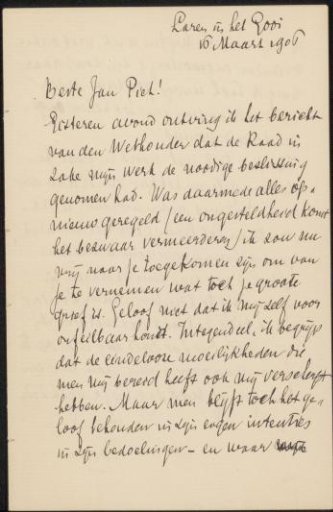 Laren in het Gooi
16 Maart 1906
Beste Jan Piet!
Gisteren avond ontving ik het bericht
van den Wethouder dat de Raad in
zake mijn werk de noodige beslissing
genomen had. Was daarmede alles op-
nieuw geregeld (een ongesteldheid komt
het bezwaar vermeerderen) ik zou nu
vrij naar je toegekomen zijn om van
je te vernemen wat toch je groote
grief is. Geloof niet dat ik mijzelf voor
onfeilbaar houdt. Integendeel, ik begrijp
dat de eindelooze moeilijkheden die
men mij bereid heeft ook mij verscherpt
hebben. Maar men blijft toch het ge-
loof behouden in zijn eigen intenties
in zijn bedoelingen – en waar